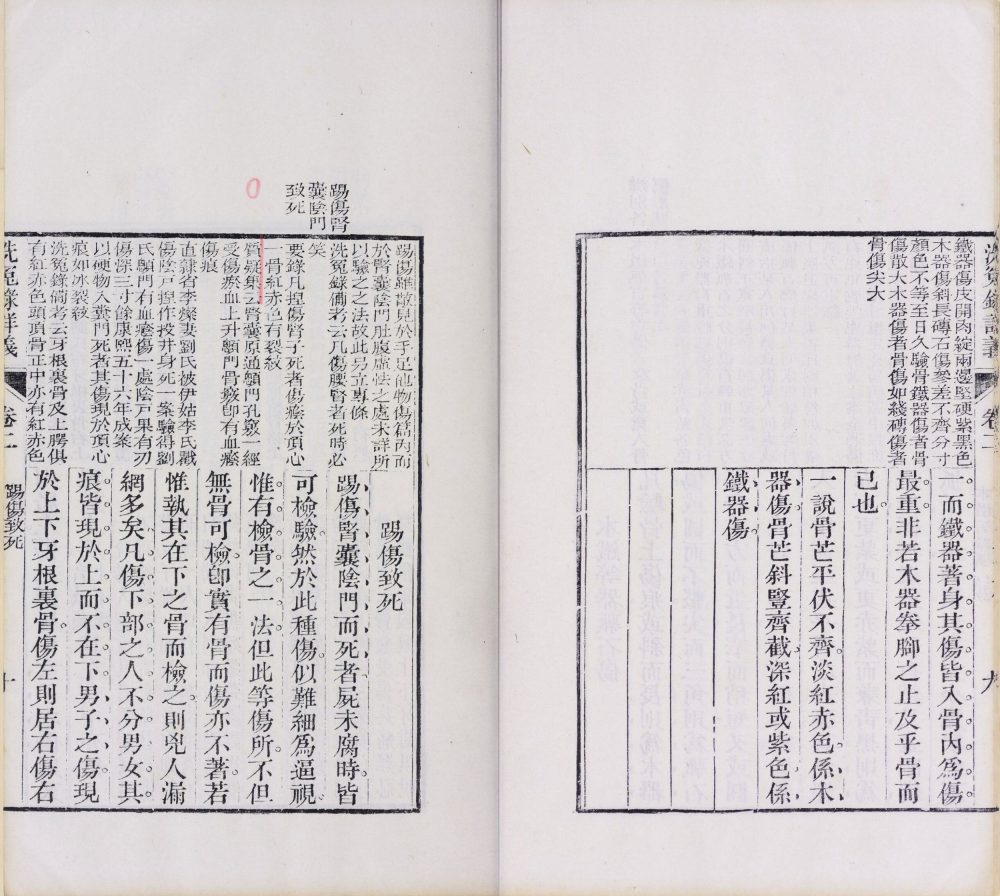 鐵器傷皮開肉綻兩邊堅硬紫黑色
木器傷斜長磚石傷參差不齊分寸
顏色不等至日久驗骨鐵器傷者骨
傷散大木器傷者骨傷如綫磚傷者
骨傷尖大
而鐵器著身其傷皆入骨內為傷
最重非若木器拳腳之止及乎骨而
已也
一說骨芒平伏不齊淡紅赤色係木
器傷骨芒斜豎齊截深紅或紫色係
鐵器傷
洗冤錄詳義
卷二
九
踢傷腎
囊陰門
致死
踢傷雖散見於手足他物傷篇內而
於腎囊陰門肚腹虛怯之處未詳所
以驗之之法故此另立專條
洗冤錄備考云凡傷腰腎者死時必
笑
要錄凡捏傷腎子死者傷瘀於頂心
一骨紅赤色有裂紋
質疑集云腎囊原通顖門孔竅一經
受傷瘀血上升顖門骨竅卽有血癊
傷痕
直隷省李燦妻劉氏被伊姑李氏戳
傷陰戶捏作投井身死一案驗得劉
氏顖門有血癊傷一處陰戶果有刃
傷深三寸餘康熙五十六年成案
以硬物入糞門死者其傷現於頂心
痕如冰裂紋
洗冤錄備考云牙根裏骨及上腭俱
有紅赤色頭頂骨正中亦有紅赤色
踢傷致死
踢傷腎囊陰門而死者屍未腐時皆
可檢驗然於此種傷似難細為逼視
惟有檢骨之一法但此等傷所不但
無骨可檢卽實有骨而傷亦不著若
惟執其在下之骨而檢之則兇人漏
網多矣凡傷下部之人不分男女其
痕皆現於上而不在下男子之傷現
於上下牙根裏骨傷左則居右傷右
洗冤錄詳義
卷二
踢傷致死
十